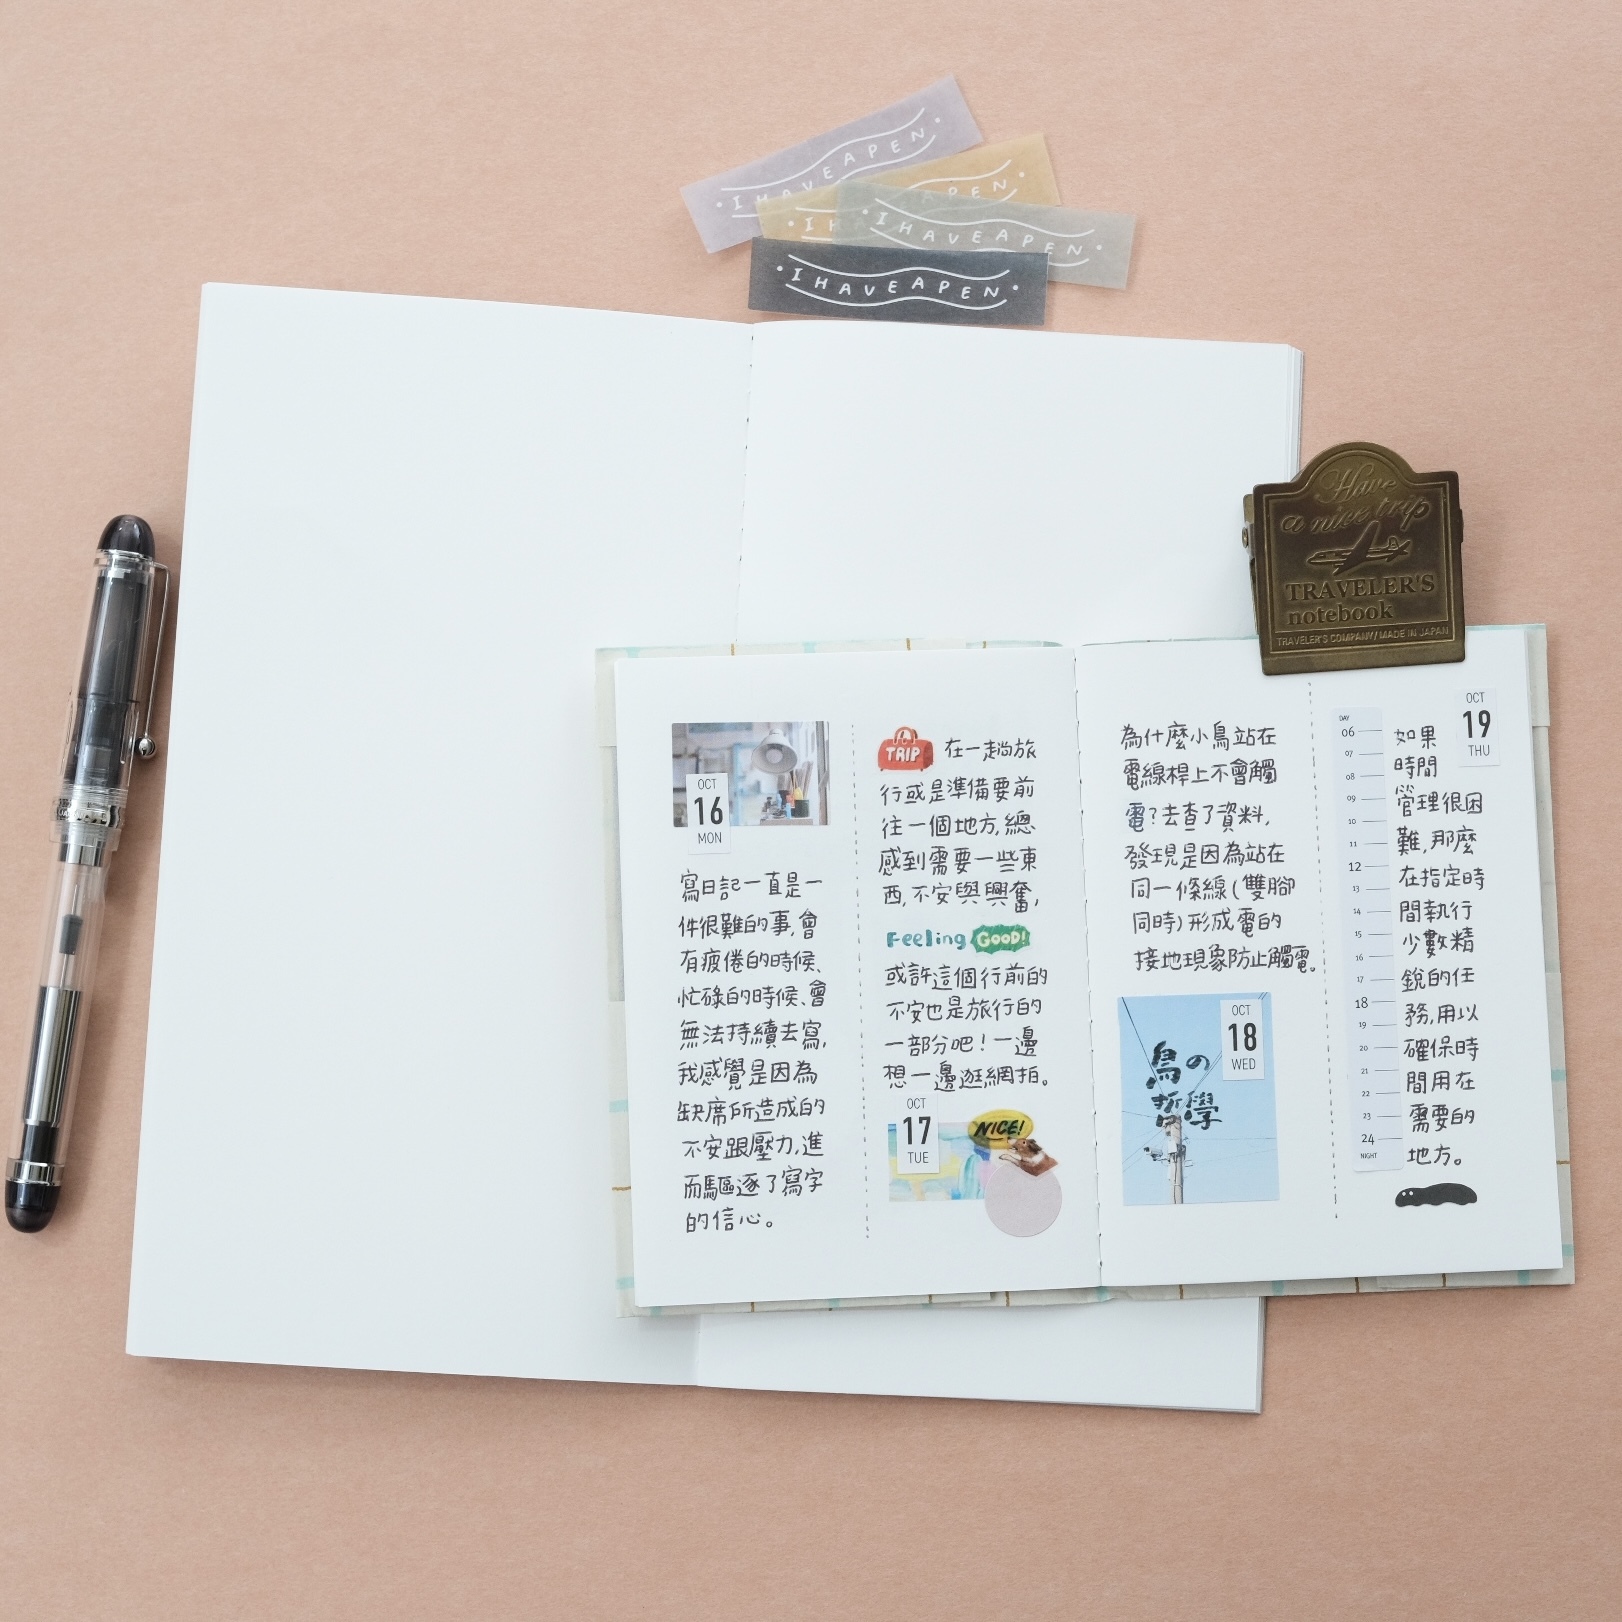 I HAVE A PEN
I H
A PEN
I HAVE A PEN
I HAVE A PEN
Have
a nice trip
TRAVELER'S
notebook
TRAVELER'S COMPANY / MADE IN JAPAN
OCT
16
MON
寫日記一直是一
件很難的事,會
有疲倦的時候、
忙碌的時候、會
無法持續去寫,
我感覺是因為
缺席所造成的
不安跟壓力,進
而驅逐了寫字
的信心。
TRIP 在一趟旅
行或是準備要前
往一個地方,總
感到需要一些東
西,不安與興奮,
Feeling GOOD!
或許這個行前的
不安也是旅行的
一部分吧!一邊
想一邊逛網拍。
OCT
17
TUE
NICE!
為什麼小鳥站在
電線桿上不會觸
電?去查了資料,
發現是因為站在
同一條線(雙腳
同時)形成電的
接地現象防止觸電。
OCT
18
WED
鳥の
哲學
DAY
06
07
08
09
10
11
12
13
14
15
16
17
18
19
20
21
22
23
24
NIGHT
OCT
19
THU
如果
時間
管理很困
難,那麼
在指定時
間執行
少數精
銳的任
務,用以
確保時
間用在
需要的
地方。